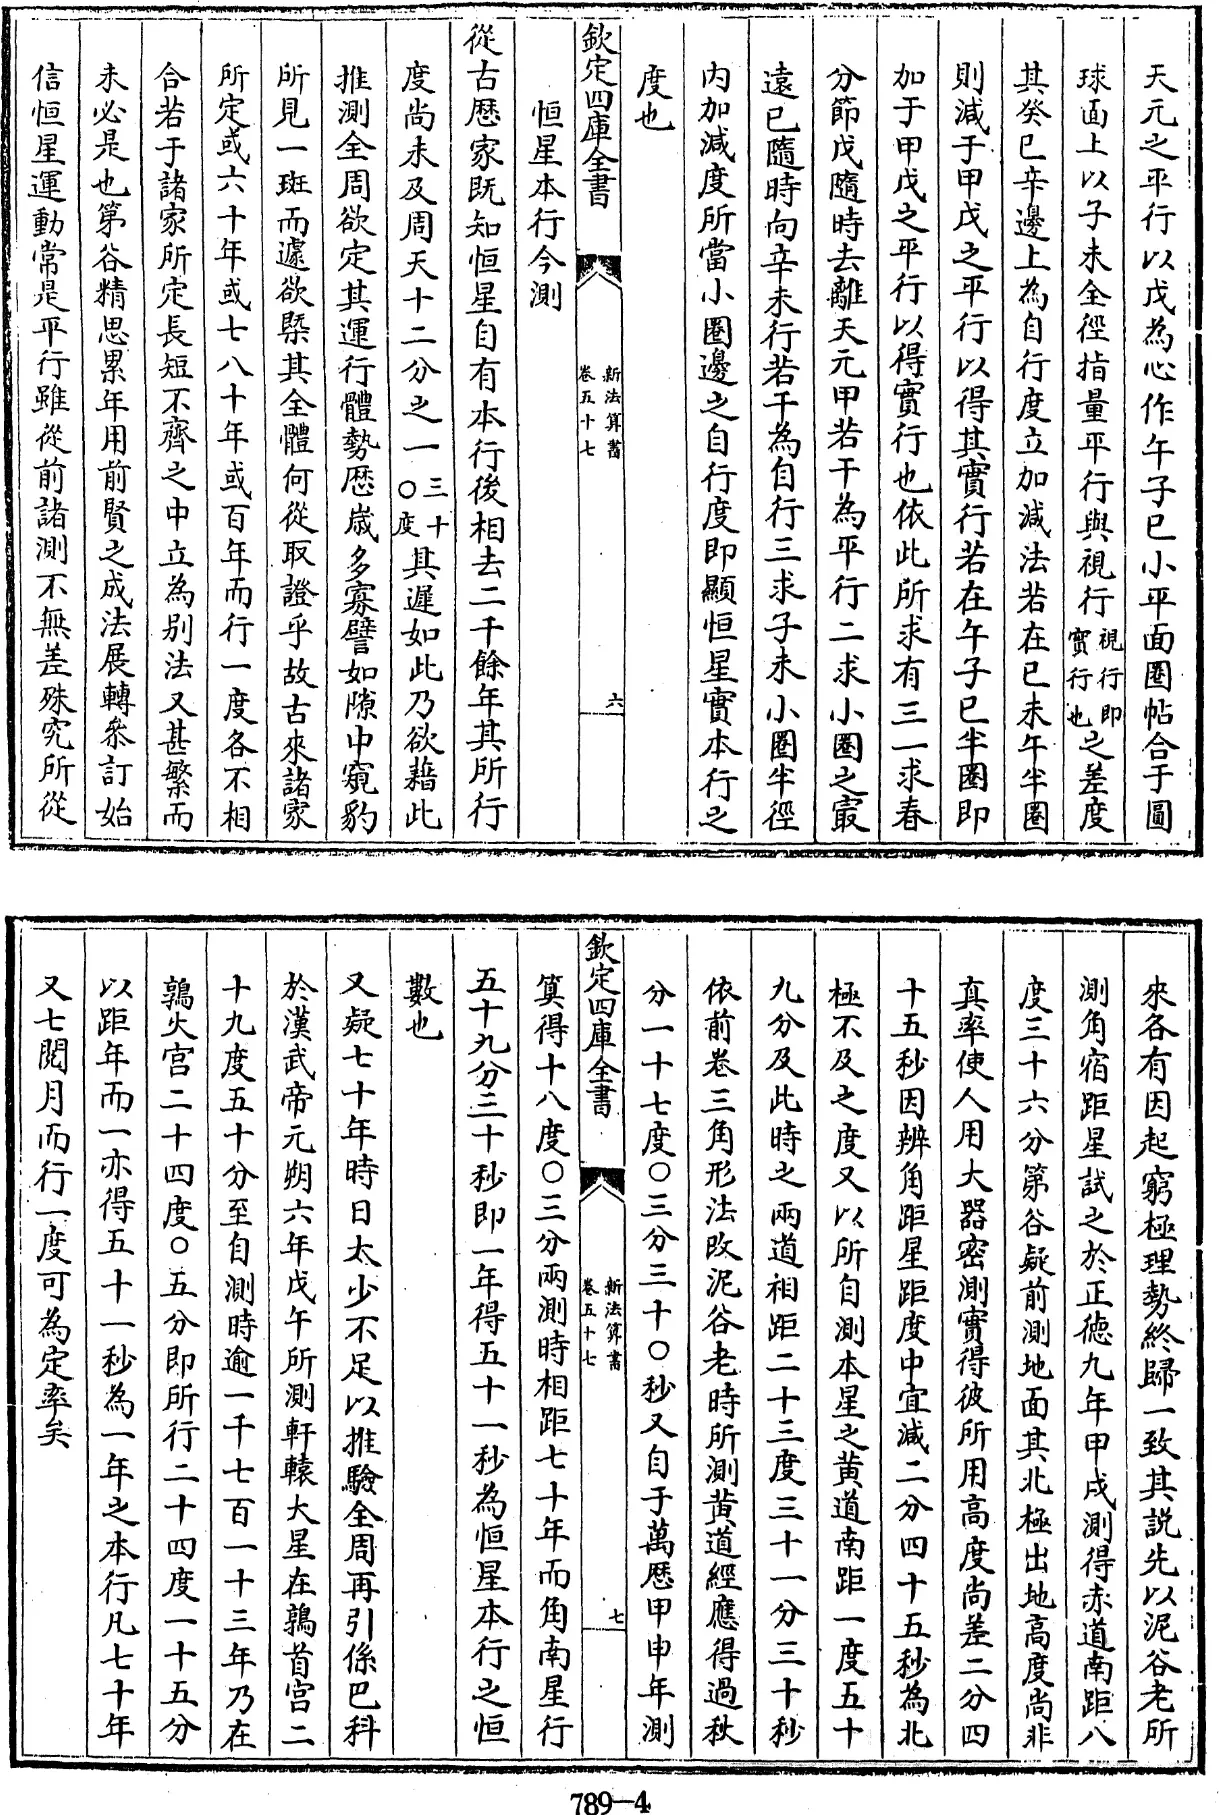 天元之平行以戊為心作午子巳小平面圈帖合于圓
球面上以子未全徑指量平行與視行視行即實行也之差度
其癸巳辛邊上為自行度立加減法若在巳未午半圈
則減于甲戊之平行以得其實行若在午子巳半圈即
加于甲戊之平行以得實行也依此所求有三一求春
分節戊隨時去離天元甲若干為平行二求小圈之最
遠巳隨時向辛未行若干為自行三求子未小圈半徑
内加減度所當小圈邊之自行度即顯恒星實本行之
度也
欽定四庫全書
新法算書
卷五十七
六
恒星本行今測
從古厯家既知恒星自有本行後相去二千餘年其所行
度尚未及周天十二分之一三十〇度其遲如此乃欲藉此
推測全周欲定其運行體勢厯嵗多寡譬如隙中窺豹
所見一斑而遽欲槩其全體何從取證乎故古來諸家
所定或六十年或七八十年或百年而行一度各不相
合若于諸家所定長短不齊之中立為别法又甚繁而
未必是也第谷精思累年用前賢之成法展轉叅訂始
信恒星運動常是平行雖從前諸測不無差殊究所從
來各有因起窮極理勢終歸一致其説先以泥谷老所
測角宿距星試之於正德九年甲戌測得赤道南距八
度三十六分第谷疑前測地面其北極出地高度尚非
真率使人用大器密測實得彼所用高度尚差二分四
十五秒因辨角距星距度中宜減二分四十五秒為北
極不及之度又以所自測本星之黄道南距一度五十
九分及此時之兩道相距二十三度三十一分三十秒
依前卷三角形法改泥谷老時所測黄道經應得過秋
分一十七度〇三分三十〇秒又自于萬厯甲申年測
欽定四庫全書
新法算書
卷五十七
七
算得十八度〇三分兩測時相距七十年而角南星行
五十九分三十秒即一年得五十一秒為恒星本行之恒
數也
又疑七十年時日太少不足以推驗全周再引係巴科
於漢武帝元朔六年戊午所測軒轅大星在鶉首宫二
十九度五十分至自測時逾一千七百一十三年乃在
鶉火宫二十四度〇五分即所行二十四度一十五分
以距年而一亦得五十一秒為一年之本行凡七十年
又七閱月而行一度可為定率矣
789-4